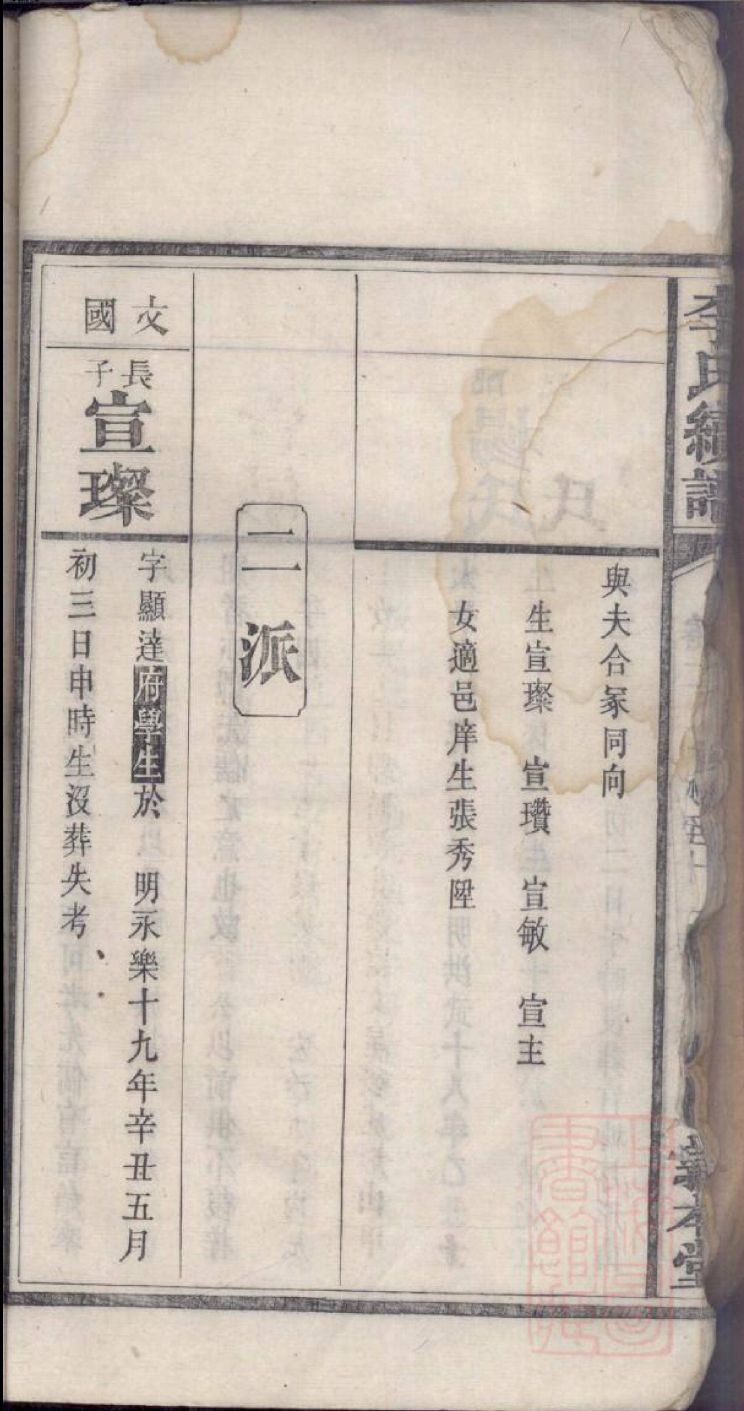 李氏續譜
與夫合冢同向
生宣璨 宣瓚 宣敏 宣主
女適邑庠生張秀陞
二派
文國
長子
宣璨
字顯達府學生於 明永樂十九年辛丑五月
初三日申時生沒葬失考